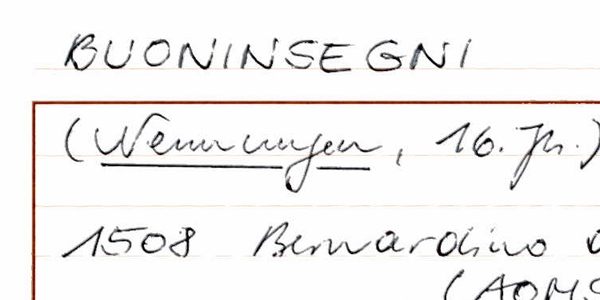 BUONINSEGNI
(Nennungen, 16. Jh.)
1508 Bernardino
(AOMS